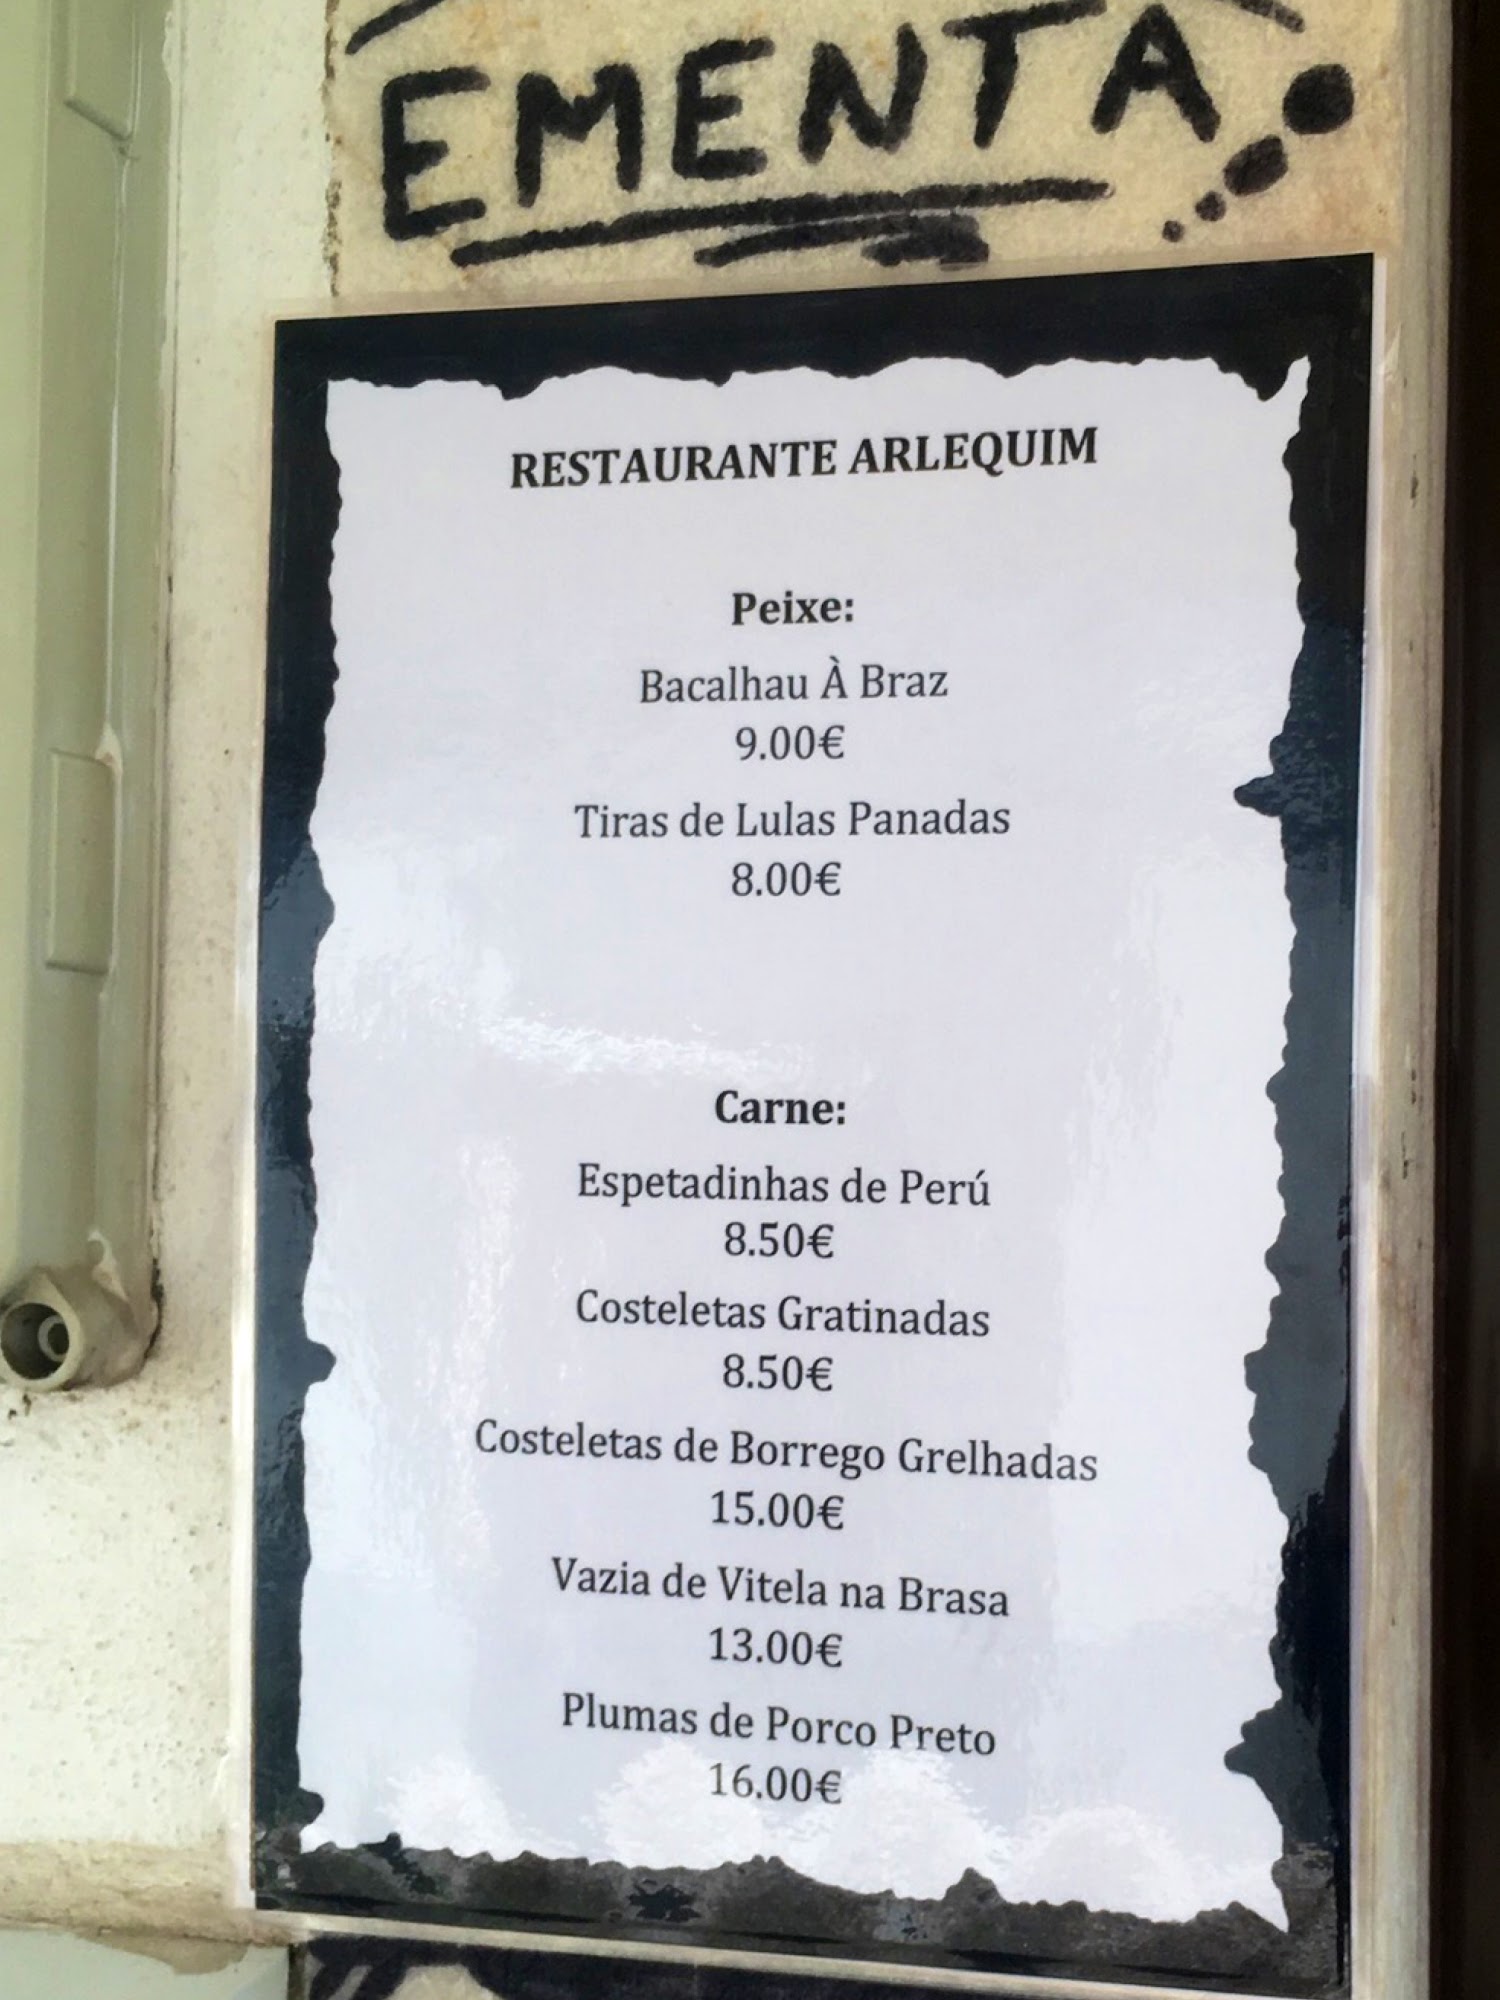 EMENTA
RESTAURANTE ARLEQUIM
Peixe:
Bacalhau À Braz
9.00€
Tiras de Lulas Panadas
8.00€
Carne:
Espetadinhas de Perú
8.50€
Costeletas Gratinadas
8.50€
Costeletas de Borrego Grelhadas
15.00€
Vazia de Vitela na Brasa
13.00€
Plumas de Porco Preto
16.00€